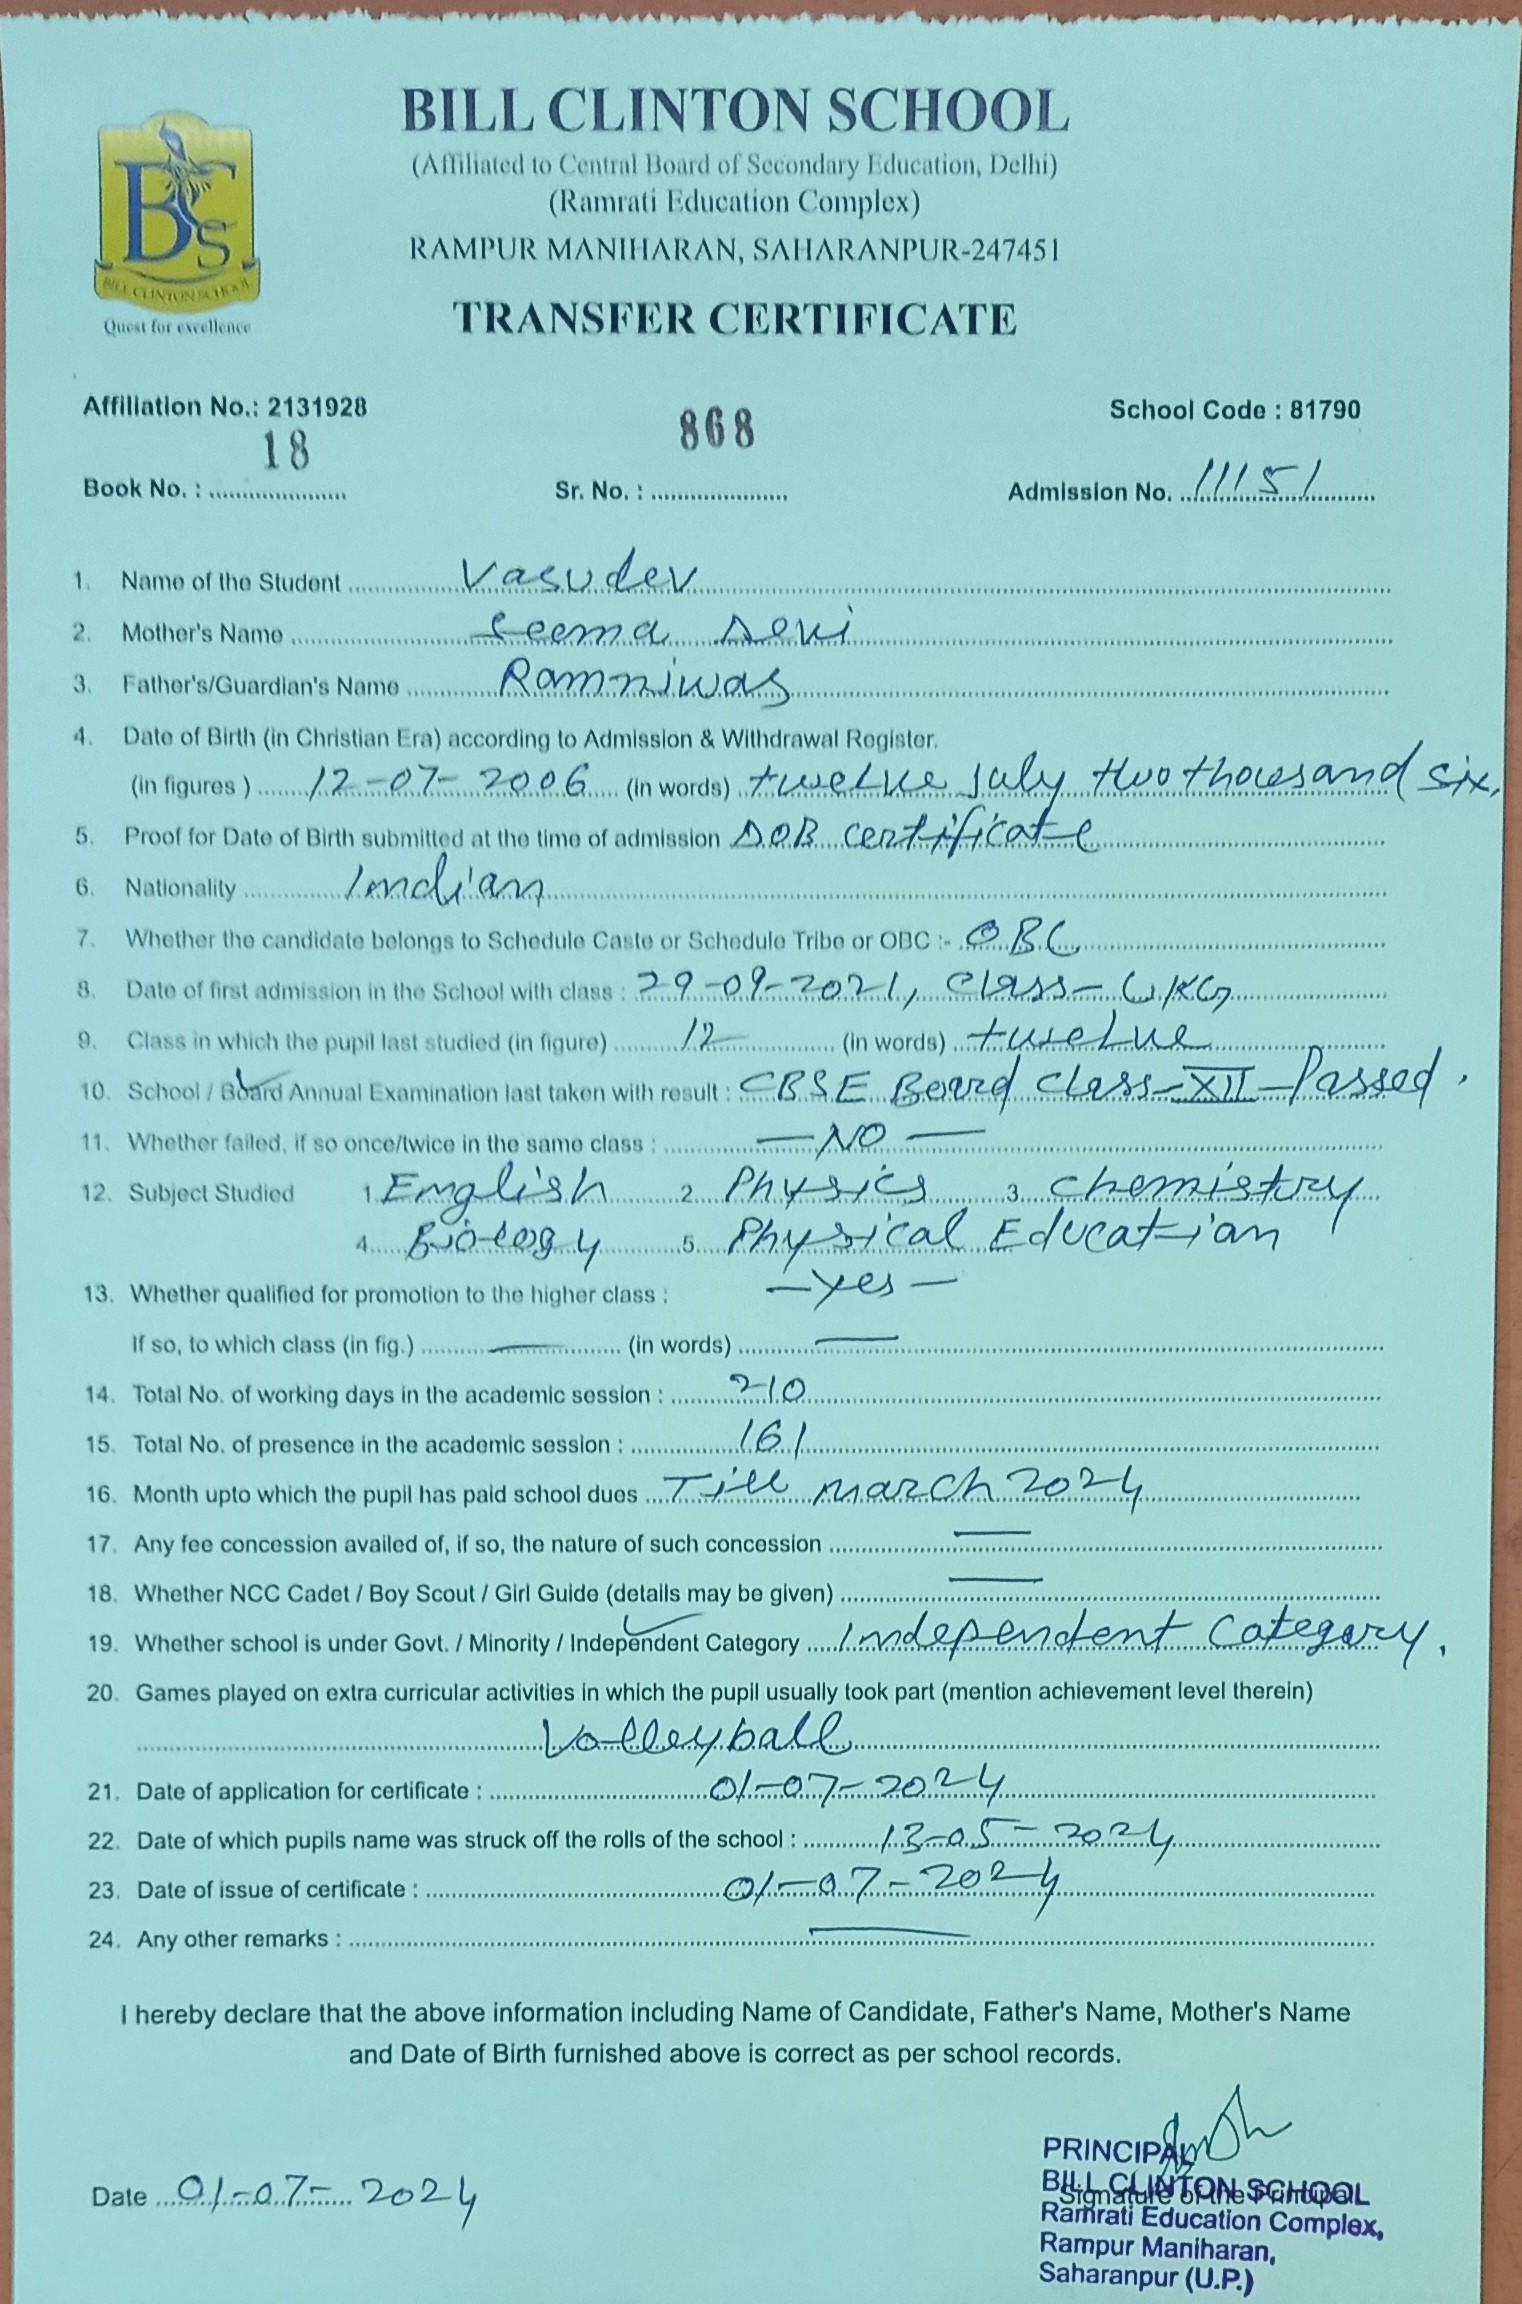 BILL CLINTON SCHOOL
(Affiliated to Central Board of Secondary Education, Delhi)
(Ramrati Education Complex)
RAMPUR MANIHARAN, SAHARANPUR-247451
BCS
BILL CLINTON SCHOOL
Quest for excellence
TRANSFER CERTIFICATE
Affiliation No.: 2131928 School Code : 81790
Book No. : 18 Sr. No. : 868 Admission No. 11151
1. Name of the Student Vasudev
2. Mother's Name Seema Devi
3. Father's/Guardian's Name Ramniwas
4. Date of Birth (in Christian Era) according to Admission & Withdrawal Register.
(in figures ) 12-07-2006 (in words) twelve july two thousand six.
5. Proof for Date of Birth submitted at the time of admission DOB certificate
6. Nationality Indian
7. Whether the candidate belongs to Schedule Caste or Schedule Tribe or OBC :- OBC
8. Date of first admission in the School with class : 29-09-2021, class- UKG
9. Class in which the pupil last studied (in figure) 12 (in words) twelve
10. School / Board Annual Examination last taken with result : CBSE Board class-XII-Passed.
11. Whether failed, if so once/twice in the same class : — NO —
12. Subject Studied 1. English 2. Physics 3. Chemistry
4. Biology 5. Physical Education
13. Whether qualified for promotion to the higher class : -Yes-
If so, to which class (in fig.) — (in words) —
14. Total No. of working days in the academic session : 210
15. Total No. of presence in the academic session : 161
16. Month upto which the pupil has paid school dues Till march 2024
17. Any fee concession availed of, if so, the nature of such concession —
18. Whether NCC Cadet / Boy Scout / Girl Guide (details may be given) —
19. Whether school is under Govt. / Minority / Independent Category Independent Category.
20. Games played on extra curricular activities in which the pupil usually took part (mention achievement level therein)
Volleyball
21. Date of application for certificate : 01-07-2024
22. Date of which pupils name was struck off the rolls of the school : 13-05-2024
23. Date of issue of certificate : 01-07-2024
24. Any other remarks : —
I hereby declare that the above information including Name of Candidate, Father's Name, Mother's Name
and Date of Birth furnished above is correct as per school records.
Date 01-07-2024
PRINCIPAL
BILL CLINTON SCHOOL
Signature of the Principal
Ramrati Education Complex,
Rampur Maniharan,
Saharanpur (U.P.)